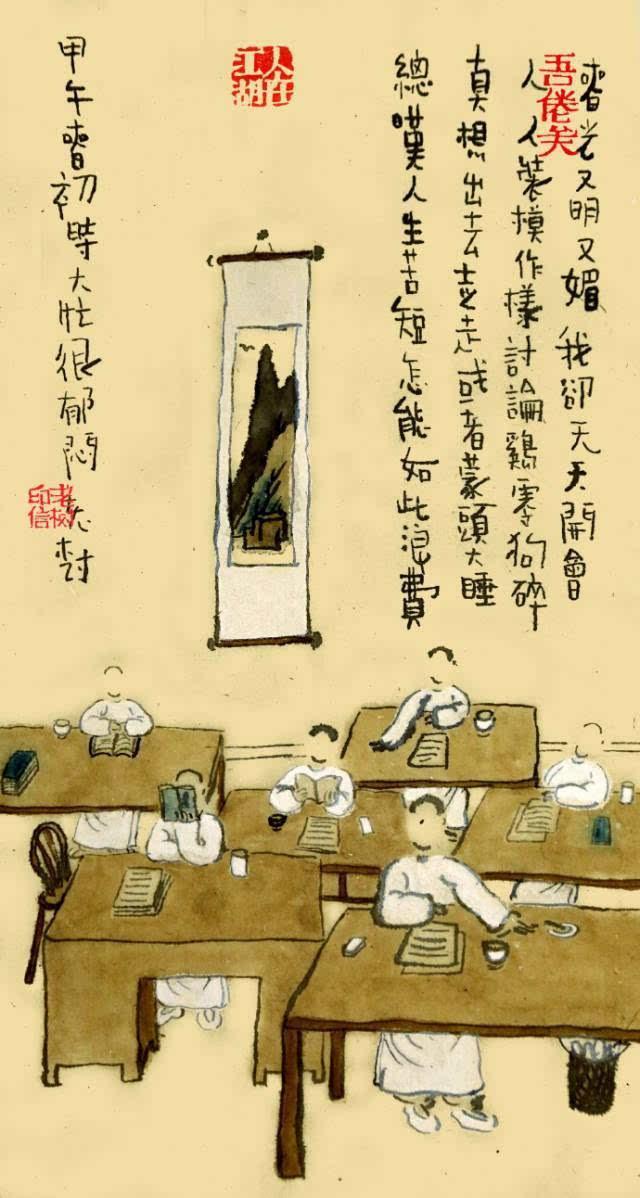 吾倦矣
春光又明又媚我卻天天開會
人人裝模作樣討論鷄零狗碎
真想出去走走或者蒙頭大睡
總嘆人生苦短怎能如此浪費
人在江湖
甲午春初時大壯很郁悶 老树
老樹印信